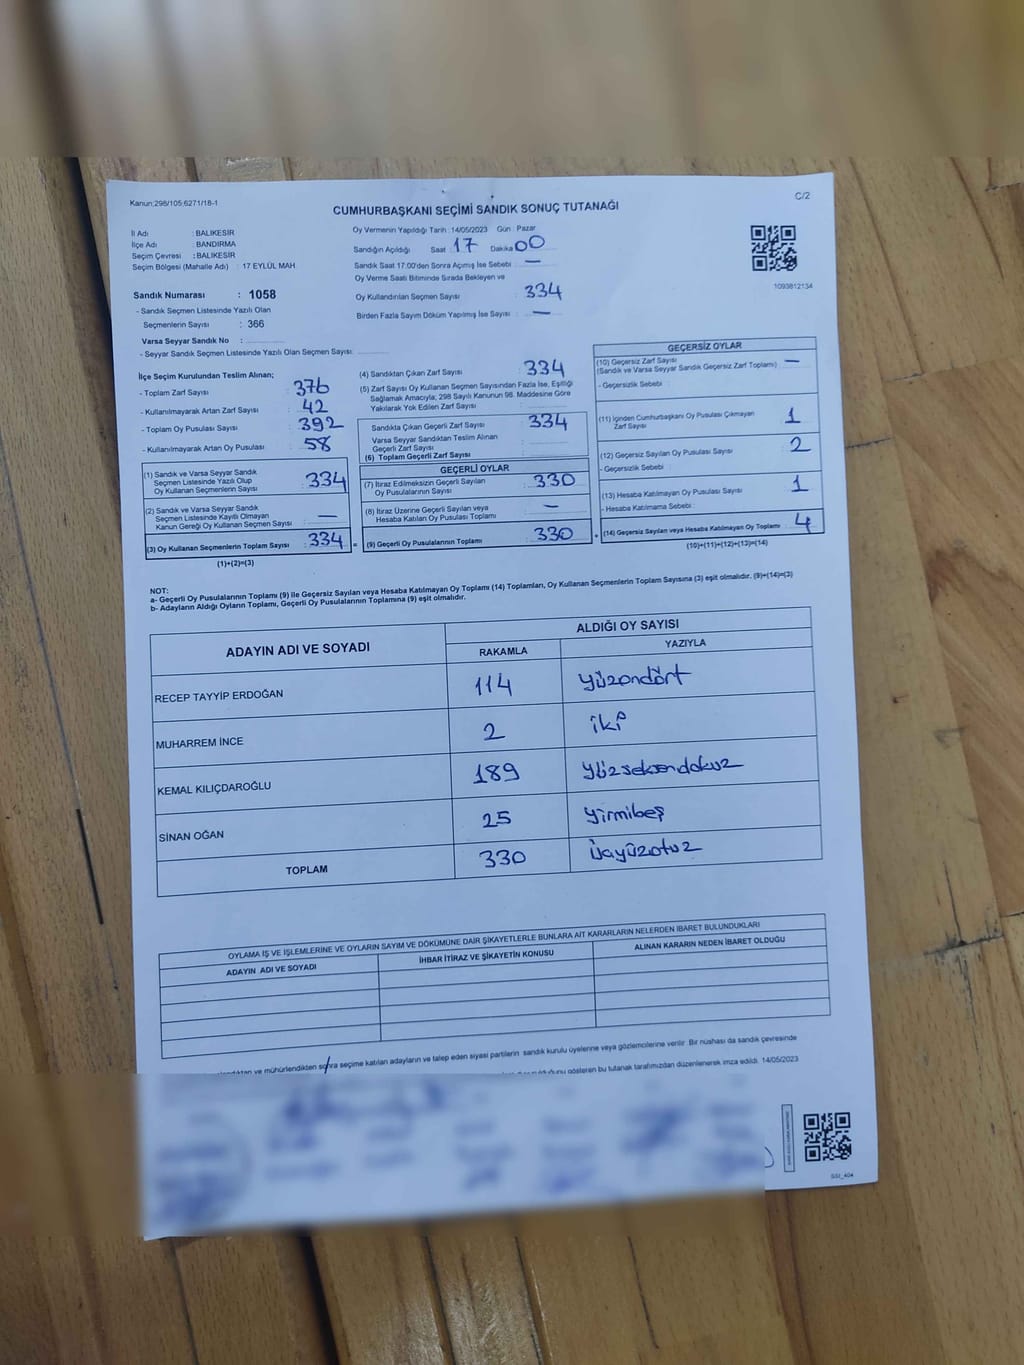 Kanun;298/105;6271/18-1
C/2
CUMHURBAŞKANI SEÇİMİ SANDIK SONUÇ TUTANAĞI
İl Adı : BALIKESİR
İlçe Adı : BANDIRMA
Seçim Çevresi : BALIKESİR
Seçim Bölgesi (Mahalle Adı) : 17 EYLÜL MAH.
Oy Vermenin Yapıldığı Tarih : 14/05/2023 Gün : Pazar
Sandığın Açıldığı Saat 17 Dakika 00
Sandık Saat 17.00'den Sonra Açımış İse Sebebi : —
Oy Verme Saati Bitiminde Sırada Bekleyen ve
Oy Kullandırılan Seçmen Sayısı : 334
Birden Fazla Sayım Döküm Yapılmış İse Sayısı : —
1093812134
Sandık Numarası : 1058
- Sandık Seçmen Listesinde Yazılı Olan
Seçmenlerin Sayısı : 366
Varsa Seyyar Sandık No :
- Seyyar Sandık Seçmen Listesinde Yazılı Olan Seçmen Sayısı:
İlçe Seçim Kurulundan Teslim Alınan;
- Toplam Zarf Sayısı : 376
- Kullanılmayarak Artan Zarf Sayısı : 42
- Toplam Oy Pusulası Sayısı : 392
- Kullanılmayarak Artan Oy Pusulası : 58
(1) Sandık ve Varsa Seyyar Sandık
Seçmen Listesinde Yazılı Olup
Oy Kullanan Seçmenlerin Sayısı : 334
(2) Sandık ve Varsa Seyyar Sandık
Seçmen Listesinde Kayıtlı Olmayan
Kanun Gereği Oy Kullanan Seçmen Sayısı : —
(3) Oy Kullanan Seçmenlerin Toplam Sayısı : 334 =
(1)+(2)=(3)
(4) Sandıktan Çıkan Zarf Sayısı : 334
(5) Zarf Sayısı Oy Kullanan Seçmen Sayısından Fazla İse, Eşitliği
Sağlamak Amacıyla; 298 Sayılı Kanunun 98. Maddesine Göre
Yakılarak Yok Edilen Zarf Sayısı :
Sandıkta Çıkan Geçerli Zarf Sayısı : 334
Varsa Seyyar Sandıktan Teslim Alınan
Geçerli Zarf Sayısı :
(6) Toplam Geçerli Zarf Sayısı :
GEÇERLİ OYLAR
(7) İtiraz Edilmeksizin Geçerli Sayılan
Oy Pusulalarının Sayısı : 330
(8) İtiraz Üzerine Geçerli Sayılan veya
Hesaba Katılan Oy Pusulası Toplamı : —
(9) Geçerli Oy Pusulalarının Toplamı : 330 +
GEÇERSİZ OYLAR
(10) Geçersiz Zarf Sayısı
(Sandık ve Varsa Seyyar Sandık Geçersiz Zarf Toplamı) : —
- Geçersizlik Sebebi :
(11) İçinden Cumhurbaşkanı Oy Pusulası Çıkmayan
Zarf Sayısı : 1
(12) Geçersiz Sayılan Oy Pusulası Sayısı : 2
- Geçersizlik Sebebi :
(13) Hesaba Katılmayan Oy Pusulası Sayısı : 1
- Hesaba Katılmama Sebebi :
(14) Geçersiz Sayılan veya Hesaba Katılmayan Oy Toplamı : 4
(10)+(11)+(12)+(13)=(14)
NOT:
a- Geçerli Oy Pusulalarının Toplamı (9) ile Geçersiz Sayılan veya Hesaba Katılmayan Oy Toplamı (14) Toplamları, Oy Kullanan Seçmenlerin Toplam Sayısına (3) eşit olmalıdır. (9)+(14)=(3)
b- Adayların Aldığı Oyların Toplamı, Geçerli Oy Pusulalarının Toplamına (9) eşit olmalıdır.
ADAYIN ADI VE SOYADI
ALDIĞI OY SAYISI
RAKAMLA YAZIYLA
RECEP TAYYİP ERDOĞAN 114 yüzondört
MUHARREM İNCE 2 iki
KEMAL KILIÇDAROĞLU 189 yüzseksendokuz
SİNAN OĞAN 25 yirmibeş
TOPLAM 330 üçyüzotuz
OYLAMA İŞ VE İŞLEMLERİNE VE OYLARIN SAYIM VE DÖKÜMÜNE DAİR ŞİKAYETLERLE BUNLARA AİT KARARLARIN NELERDEN İBARET BULUNDUKLARI
ADAYIN ADI VE SOYADI
İHBAR İTİRAZ VE ŞİKAYETİN KONUSU
ALINAN KARARIN NEDEN İBARET OLDUĞU
ve mühürlendikten sonra seçime katılan adayların ve talep eden siyasi partilerin sandık kurulu üyelerine veya gözlemcilerine verilir. Bir nüshası da sandık çevresinde
gösteren bu tutanak tarafımızdan düzenlenerek imza edildi. 14/05/2023
GSI_404